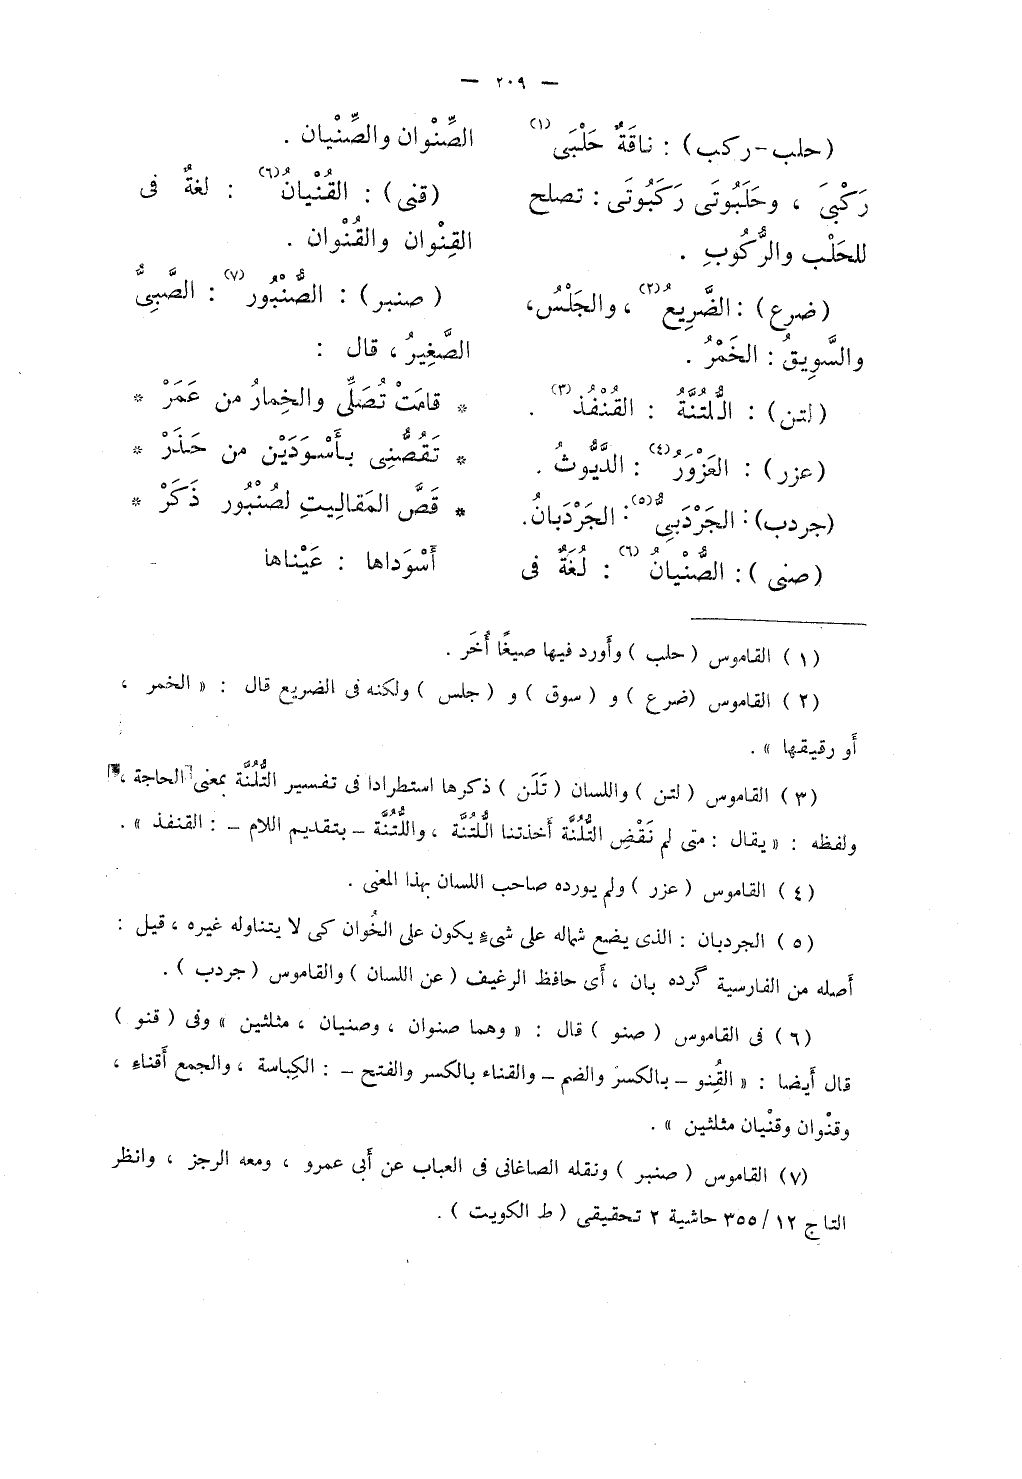 — ٢٠٩ —
(حلب-ركب) : ناقَةٌ حَلْبَى (١)
رَكْبَى ، وحَلَبُوتَى رَكَبُوتَى : تصلح
للحَلْب والرُّكُوبِ .
(ضرع) : الضَّرِيعُ (٢) ، والجَلْسُ،
والسَّوِيقُ : الخَمْرُ .
(لتن) : اللُّتُنَّةُ : القُنْفُذ (٣) .
(عزر) : العَزْوَرُ (٤) : الدَّيُّوثُ .
(جردب) : الجَرْدَبِىُّ (٥) : الجَرْدَبانُ.
(صنى) : الصُّنْيانُ (٦) : لُغَةٌ فى
الصِّنْوان والصِّنْيان .
(قنى) : القُنْيانُ (٦) : لغةٌ فى
القِنْوان والقُنْوان .
(صنبر) : الصُّنْبُور (٧) : الصَّبِىُّ
الصَّغِيرُ ، قال :
* قامَتْ تُصَلِّى والخِمارُ من عَمَرْ *
* تَقُصُّنِى بأَسْوَدَيْن من حَذَرْ *
* قَصَّ المَقالِيتِ لصُنْبُور ذَكَرْ *
أَسْوَداها : عَيْناها
(١) القاموس (حلب) وأَورد فيها صيغًا أُخَر .
(٢) القاموس (ضرع) و (سوق) و (جلس) ولكنه فى الضريع قال : « الخمر ،
أَو رقيقها » .
(٣) القاموس (لتن) واللسان (تَلَن) ذكرها استطرادا فى تفسير التُّلُنَّة بمعنى الحاجة ،
ولفظه : « يقال : متى لم نَقْضِ التُّلُنَّة أَخذتنا اللُّتُنَّة ، واللُّتُنَّة – بتقديم اللام – : القنفذ » .
(٤) القاموس (عزر) ولم يورده صاحب اللسان بهذا المعنى .
(٥) الجردبان : الذى يضع شماله على شىءٍ يكون على الخُوان كى لا يتناوله غيره ، قيل :
أصله من الفارسية گرده بان ، أَى حافظ الرغيف (عن اللسان) والقاموس (جردب) .
(٦) فى القاموس (صنو) قال : « وهما صنوان ، وصنيان ، مثلثين » وفى (قنو)
قال أَيضا : « القُِنو – بالكسر والضم – والقناء بالكسر والفتح – : الكِباسة ، والجمع أَقناء ،
وقنْوان وقنْيان مثلثين » .
(٧) القاموس (صنبر) ونقله الصاغانى فى العباب عن أَبى عمرو ، ومعه الرجز ، وانظر
التاج ١٢/ ٣٥٥ حاشية ٢ تحقيقى (ط الكويت) .